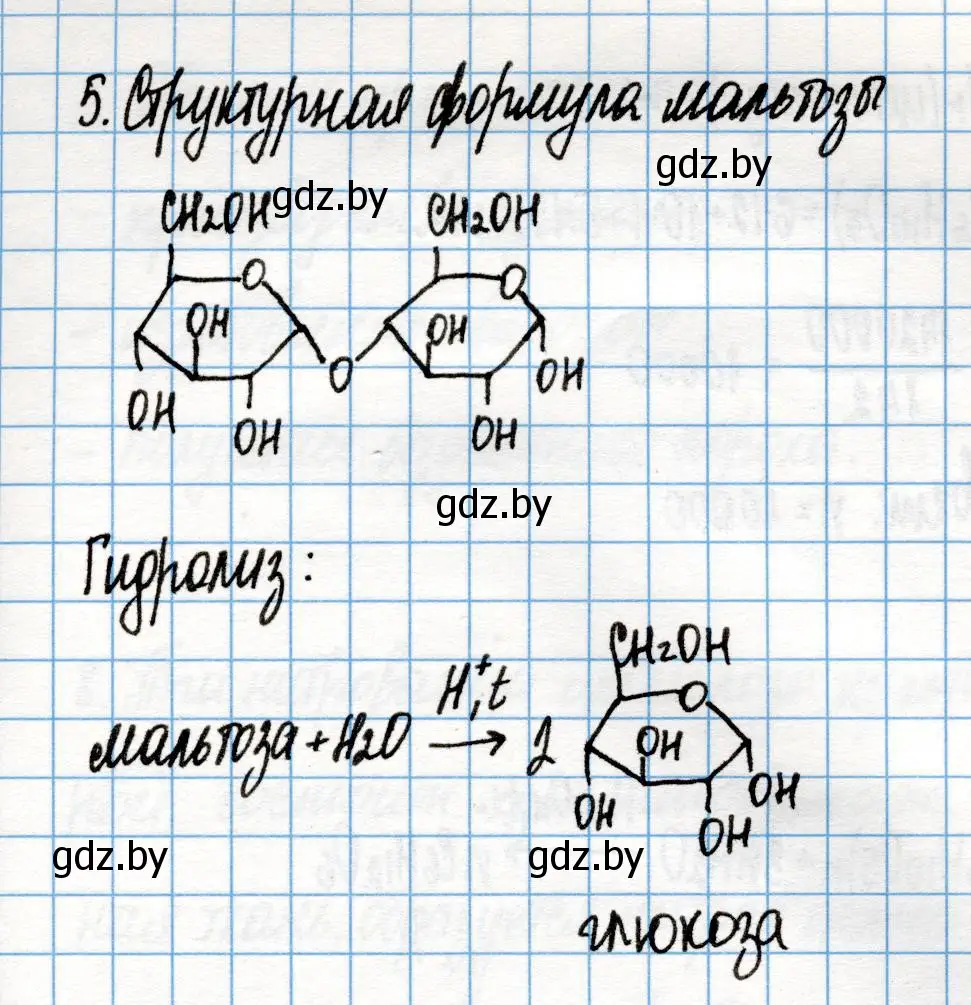 5. Структурная формула мальтозы
gdz.by
gdz.by
CH2OH CH2OH
O O
OH OH
O OH
OH OH OH
gdz.by
Гидролиз:
CH2OH
H⁺, t O
мальтоза + H2O → 2 OH
OH OH
OH
gdz.by gdz.by
глюкоза